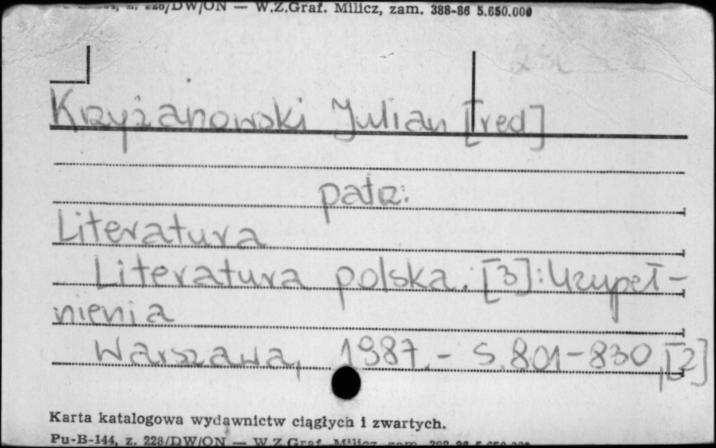 z. 228/DW/ON — W.Z.Graf. Milicz, zam. 388-86 5.650.000
Krzyżanowski Julian [red]
patrz:
Literatura
Literatura polska. [3]: Uzupeł-
nienia
Warszawa, 1987. - S. 801-830, [2]
Karta katalogowa wydawnictw ciągłych i zwartych.
Pu-B-144, z. 228/DW/ON — W.Z.Graf. Milicz, zam. 388-86 5.650.000